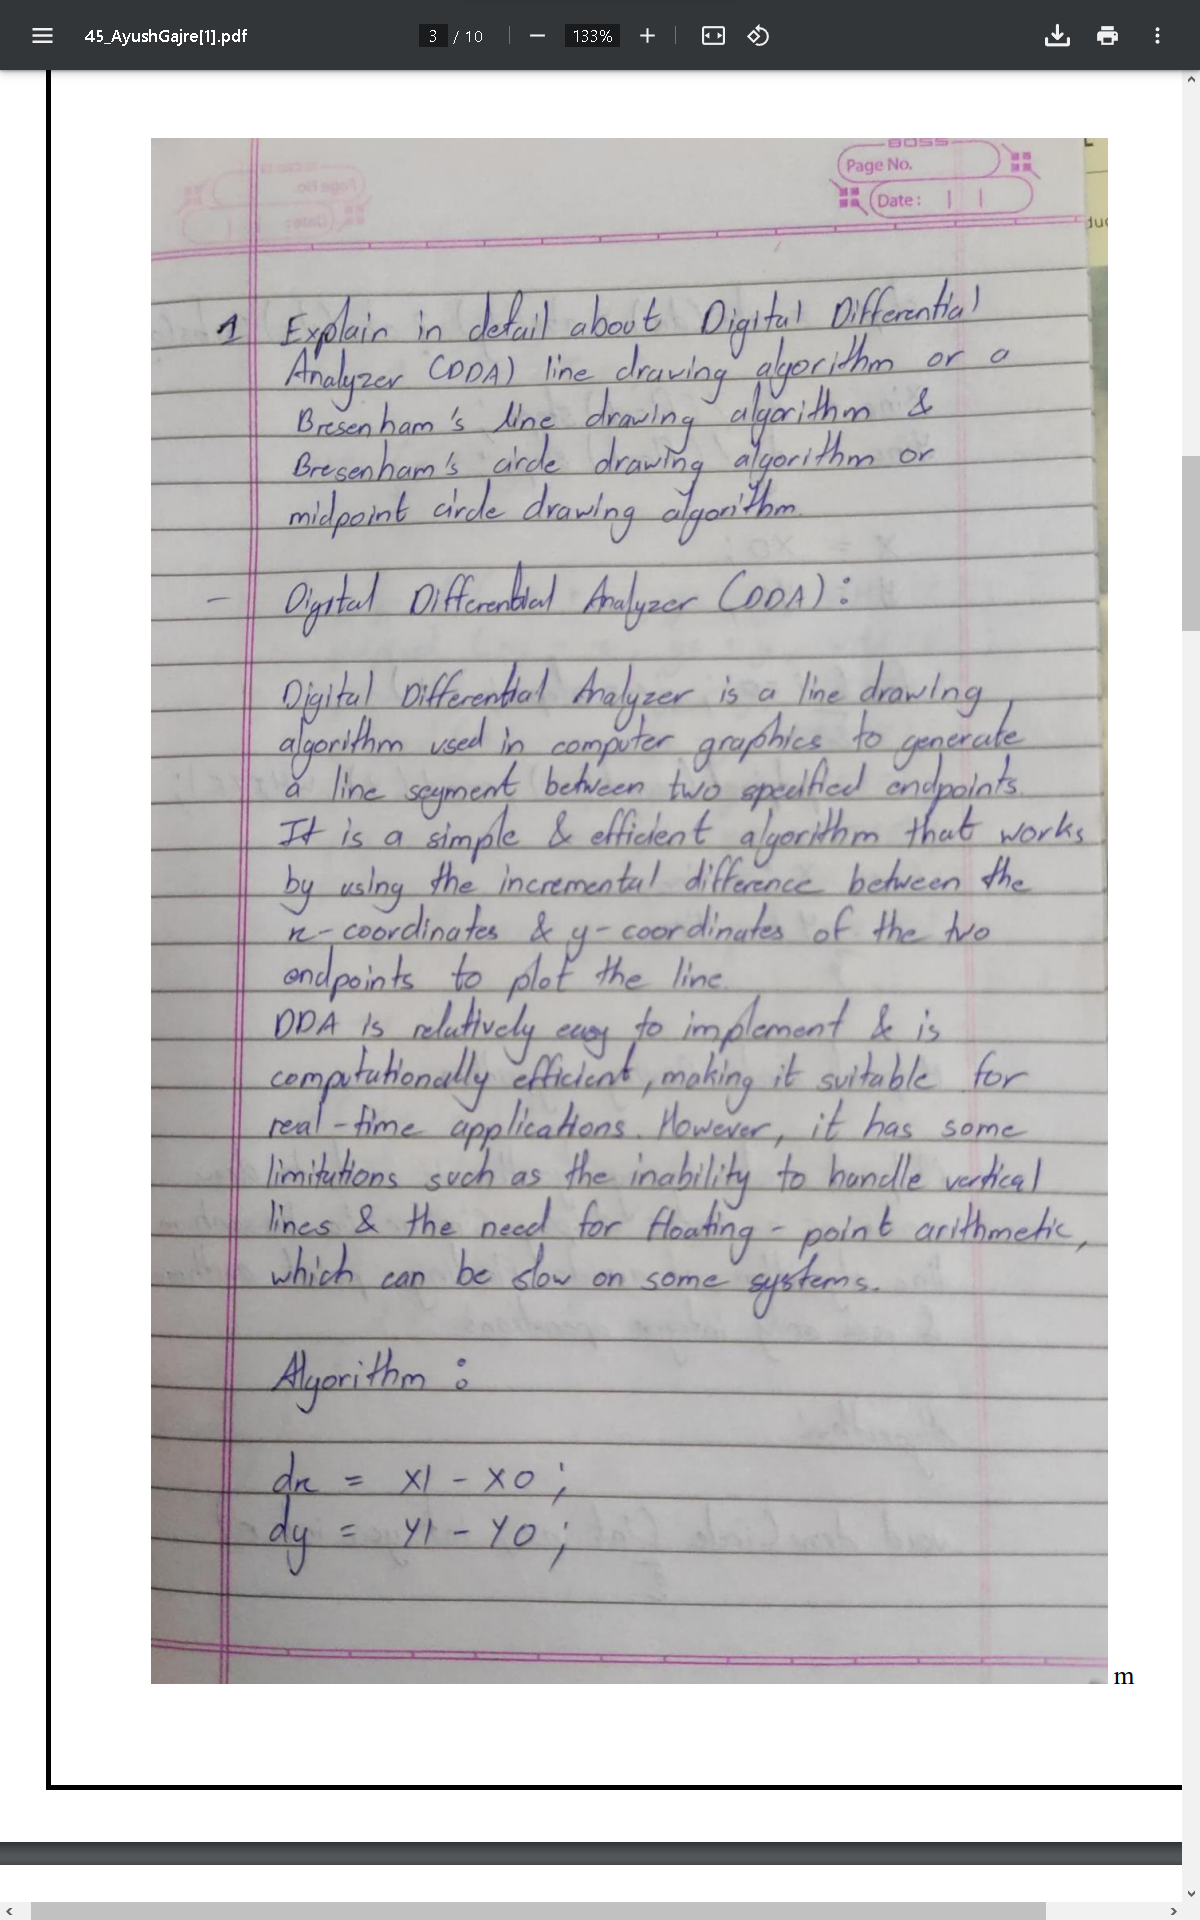 45_AyushGajre[1].pdf
3 / 10
133%
BOSS
Page No.
Date :
duc
1 Explain in detail about Digital Differential
Analyzer (DDA) line drawing algorithm or a
Bresenham's line drawing algorithm &
Bresenham's circle drawing algorithm or
midpoint circle drawing algorithm.
- Digital Differential Analyzer (DDA) :
Digital Differential Analyzer is a line drawing
algorithm used in computer graphics to generate
a line segment between two specified endpoints.
It is a simple & efficient algorithm that works
by using the incremental difference between the
x-coordinates & y-coordinates of the two
endpoints to plot the line.
DDA is relatively easy to implement & is
computationally efficient, making it suitable for
real-time applications. However, it has some
limitations such as the inability to handle vertical
lines & the need for floating-point arithmetic,
which can be slow on some systems.
Algorithm :
dx = X1 - X0 ;
dy = Y1 - Y0 ;
m